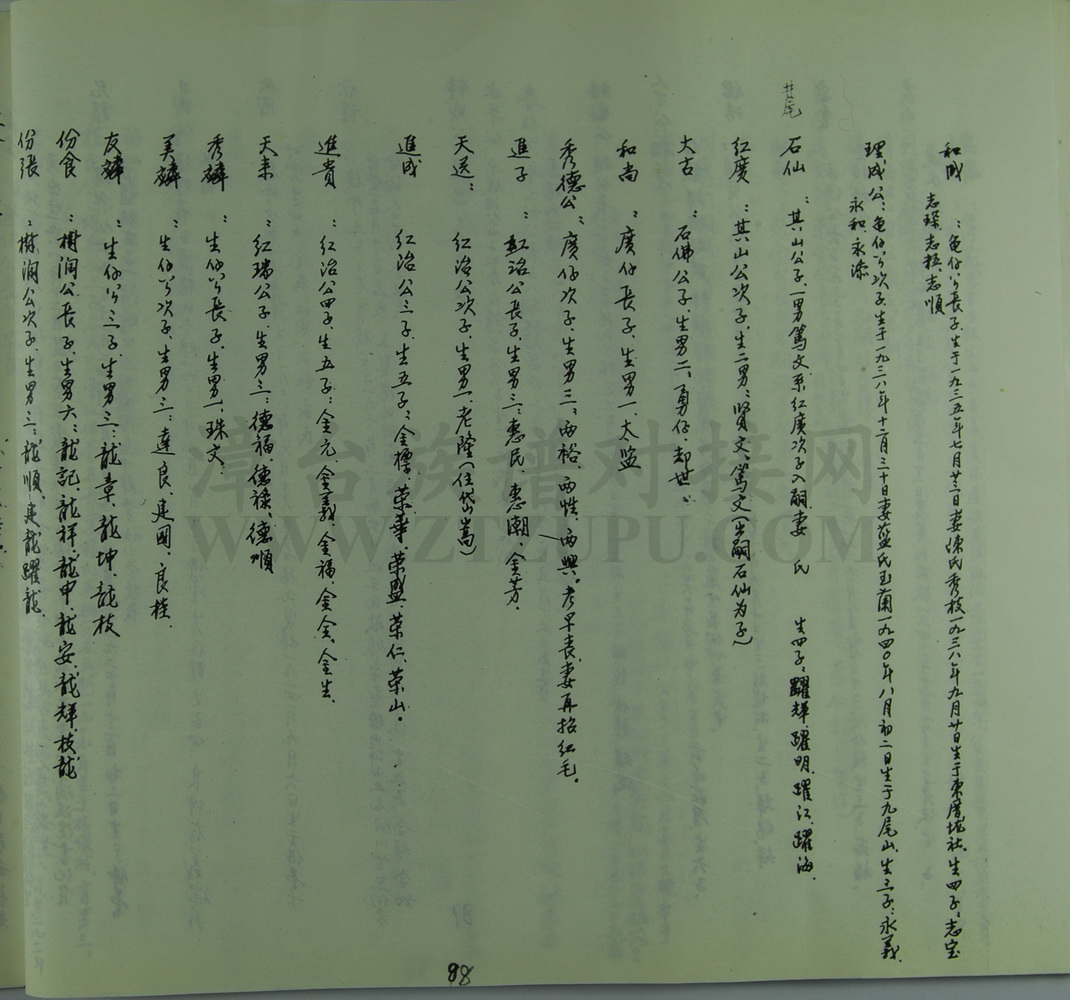 和成：龟仔公長子、生于一九三五年七月廿三日妻陳氏秀枝一九三八年九月廿日生于東厝垅社、生四子：志宝
志璨、志程、志順
理成公：龟仔公次子、生于一九三八年十二月三十日妻蓝氏玉蘭一九四〇年八月初二日生于九尾山、生三子：永義
永和、永添
井尾
石仙：其山公子、一男篤文系紅廣次子入嗣妻 氏 生四子：躍輝、躍明、躍江、躍海、
紅廣：其山公次子、生二男：賢文、篤文（出嗣石仙为子）
大古：石佛公子、生男二、勇仔、却世
和尚：廣仔長子、生男一、太监
秀德公：廣仔次子、生男三：両裕、両性、両興。考早喪、妻再招紅毛。
進子：紅治公長子、生男三：惠民、惠潮、金芳、
天送：紅治公次子、生男一、老隆（住岱嵩）
進成 紅治公三子、生五子：金標、荣華、荣盛、荣仁、荣山。
進貴：紅治公四子、生五子：金元、金義、金福、金金、金生、
天来：紅瑞公子、生男三：德福、德祿、德順
秀麟：生仔公長子、生男一、珠文、
美麟：生仔公次子、生男三：達良、建國、良桂、
友麟：生仔公三子、生男三：龍章、龍坤、龍枝
份食：樹潤公長子、生男六：龍記、龍祥、龍申、龍安、龍輝、枝龍
份張：樹潤公次子、生男三：龍順、建龍、躍龍、
88
漳台族谱对接网
WWW.ZTZUPU.COM